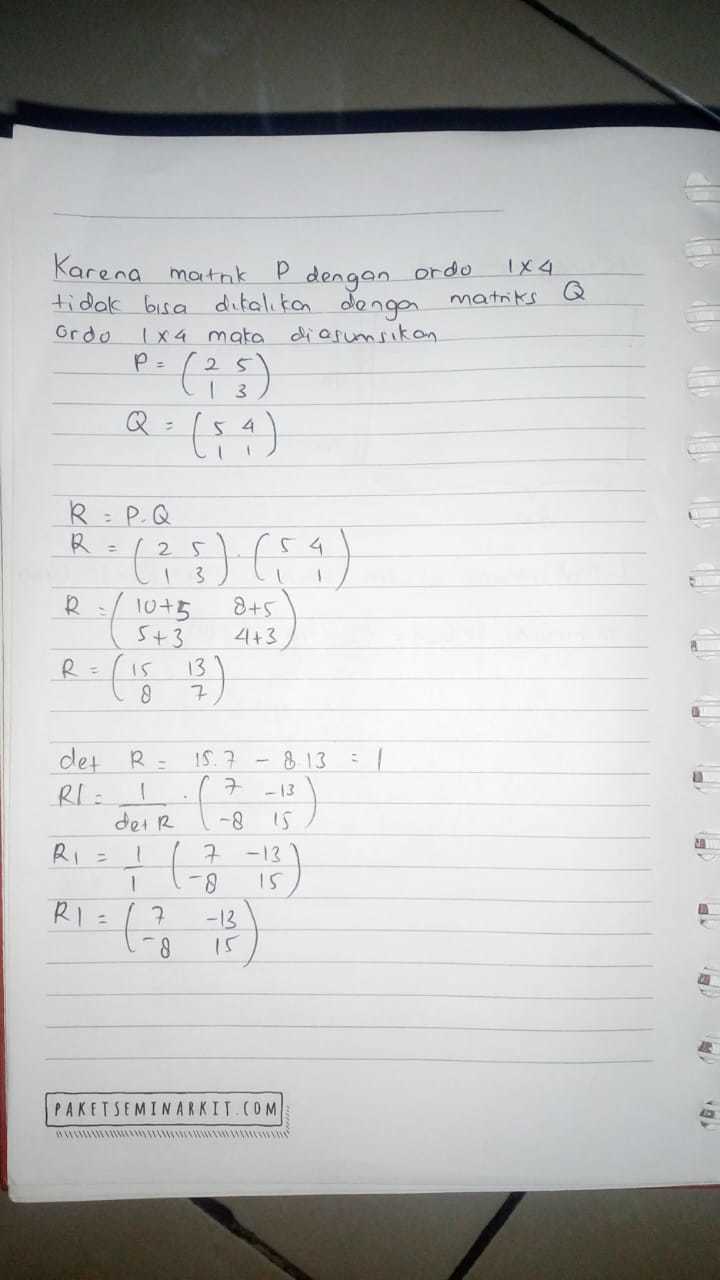 Karena matrik P dengan ordo 1x4
tidak bisa dikalikan dengan matriks Q
Ordo 1x4 maka diasumsikan
P = ( 2 5
1 3 )
Q = ( 5 4
1 1 )
R = P.Q
R = ( 2 5
1 3 ) . ( 5 4
1 1 )
R = ( 10+5 8+5
5+3 4+3 )
R = ( 15 13
8 7 )
det R = 15.7 - 8.13 = 1
R1 = 1/det R . ( 7 -13
-8 15 )
R1 = 1/1 ( 7 -13
-8 15 )
R1 = ( 7 -13
-8 15 )
PAKETSEMINARKIT.COM